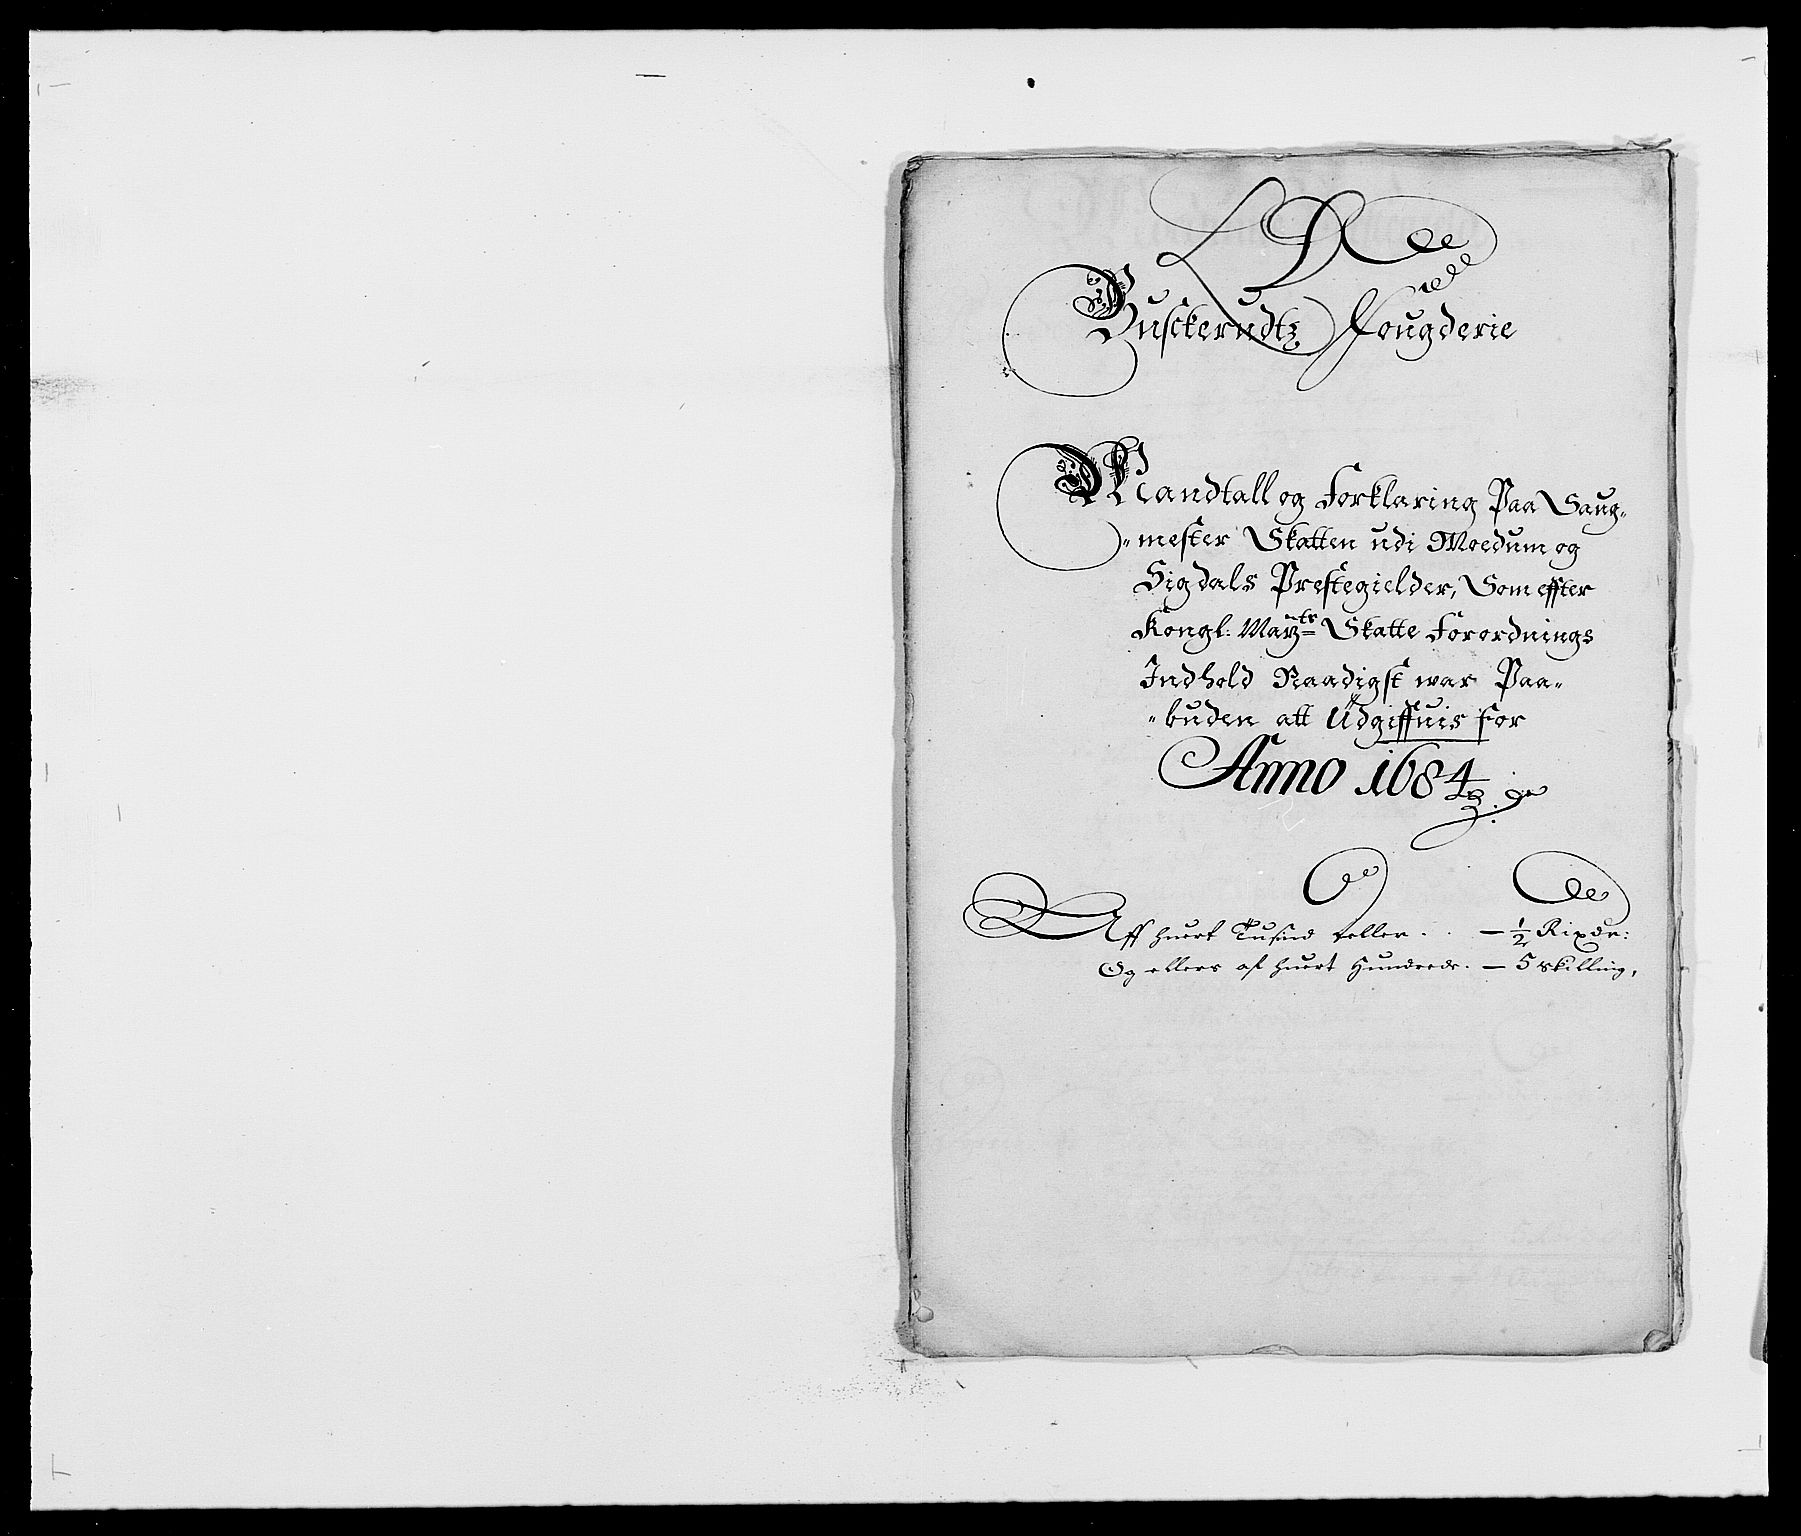 Busckerudtz Fougderie
Mandtall og Forklaring Paa Saug-
-mester Skatten udi Moedum og
Sigdals Prestegielder, Som effter
Kongl: Mayztts Skatte Forordnings
Indhold Naadigst war Paa-
-buden att Udgiffuis for
Anno 1684
Aff huert Tusind teller . . — ½ Rixdr:
Og ellers af huert Hundrede. — 5 skilling,